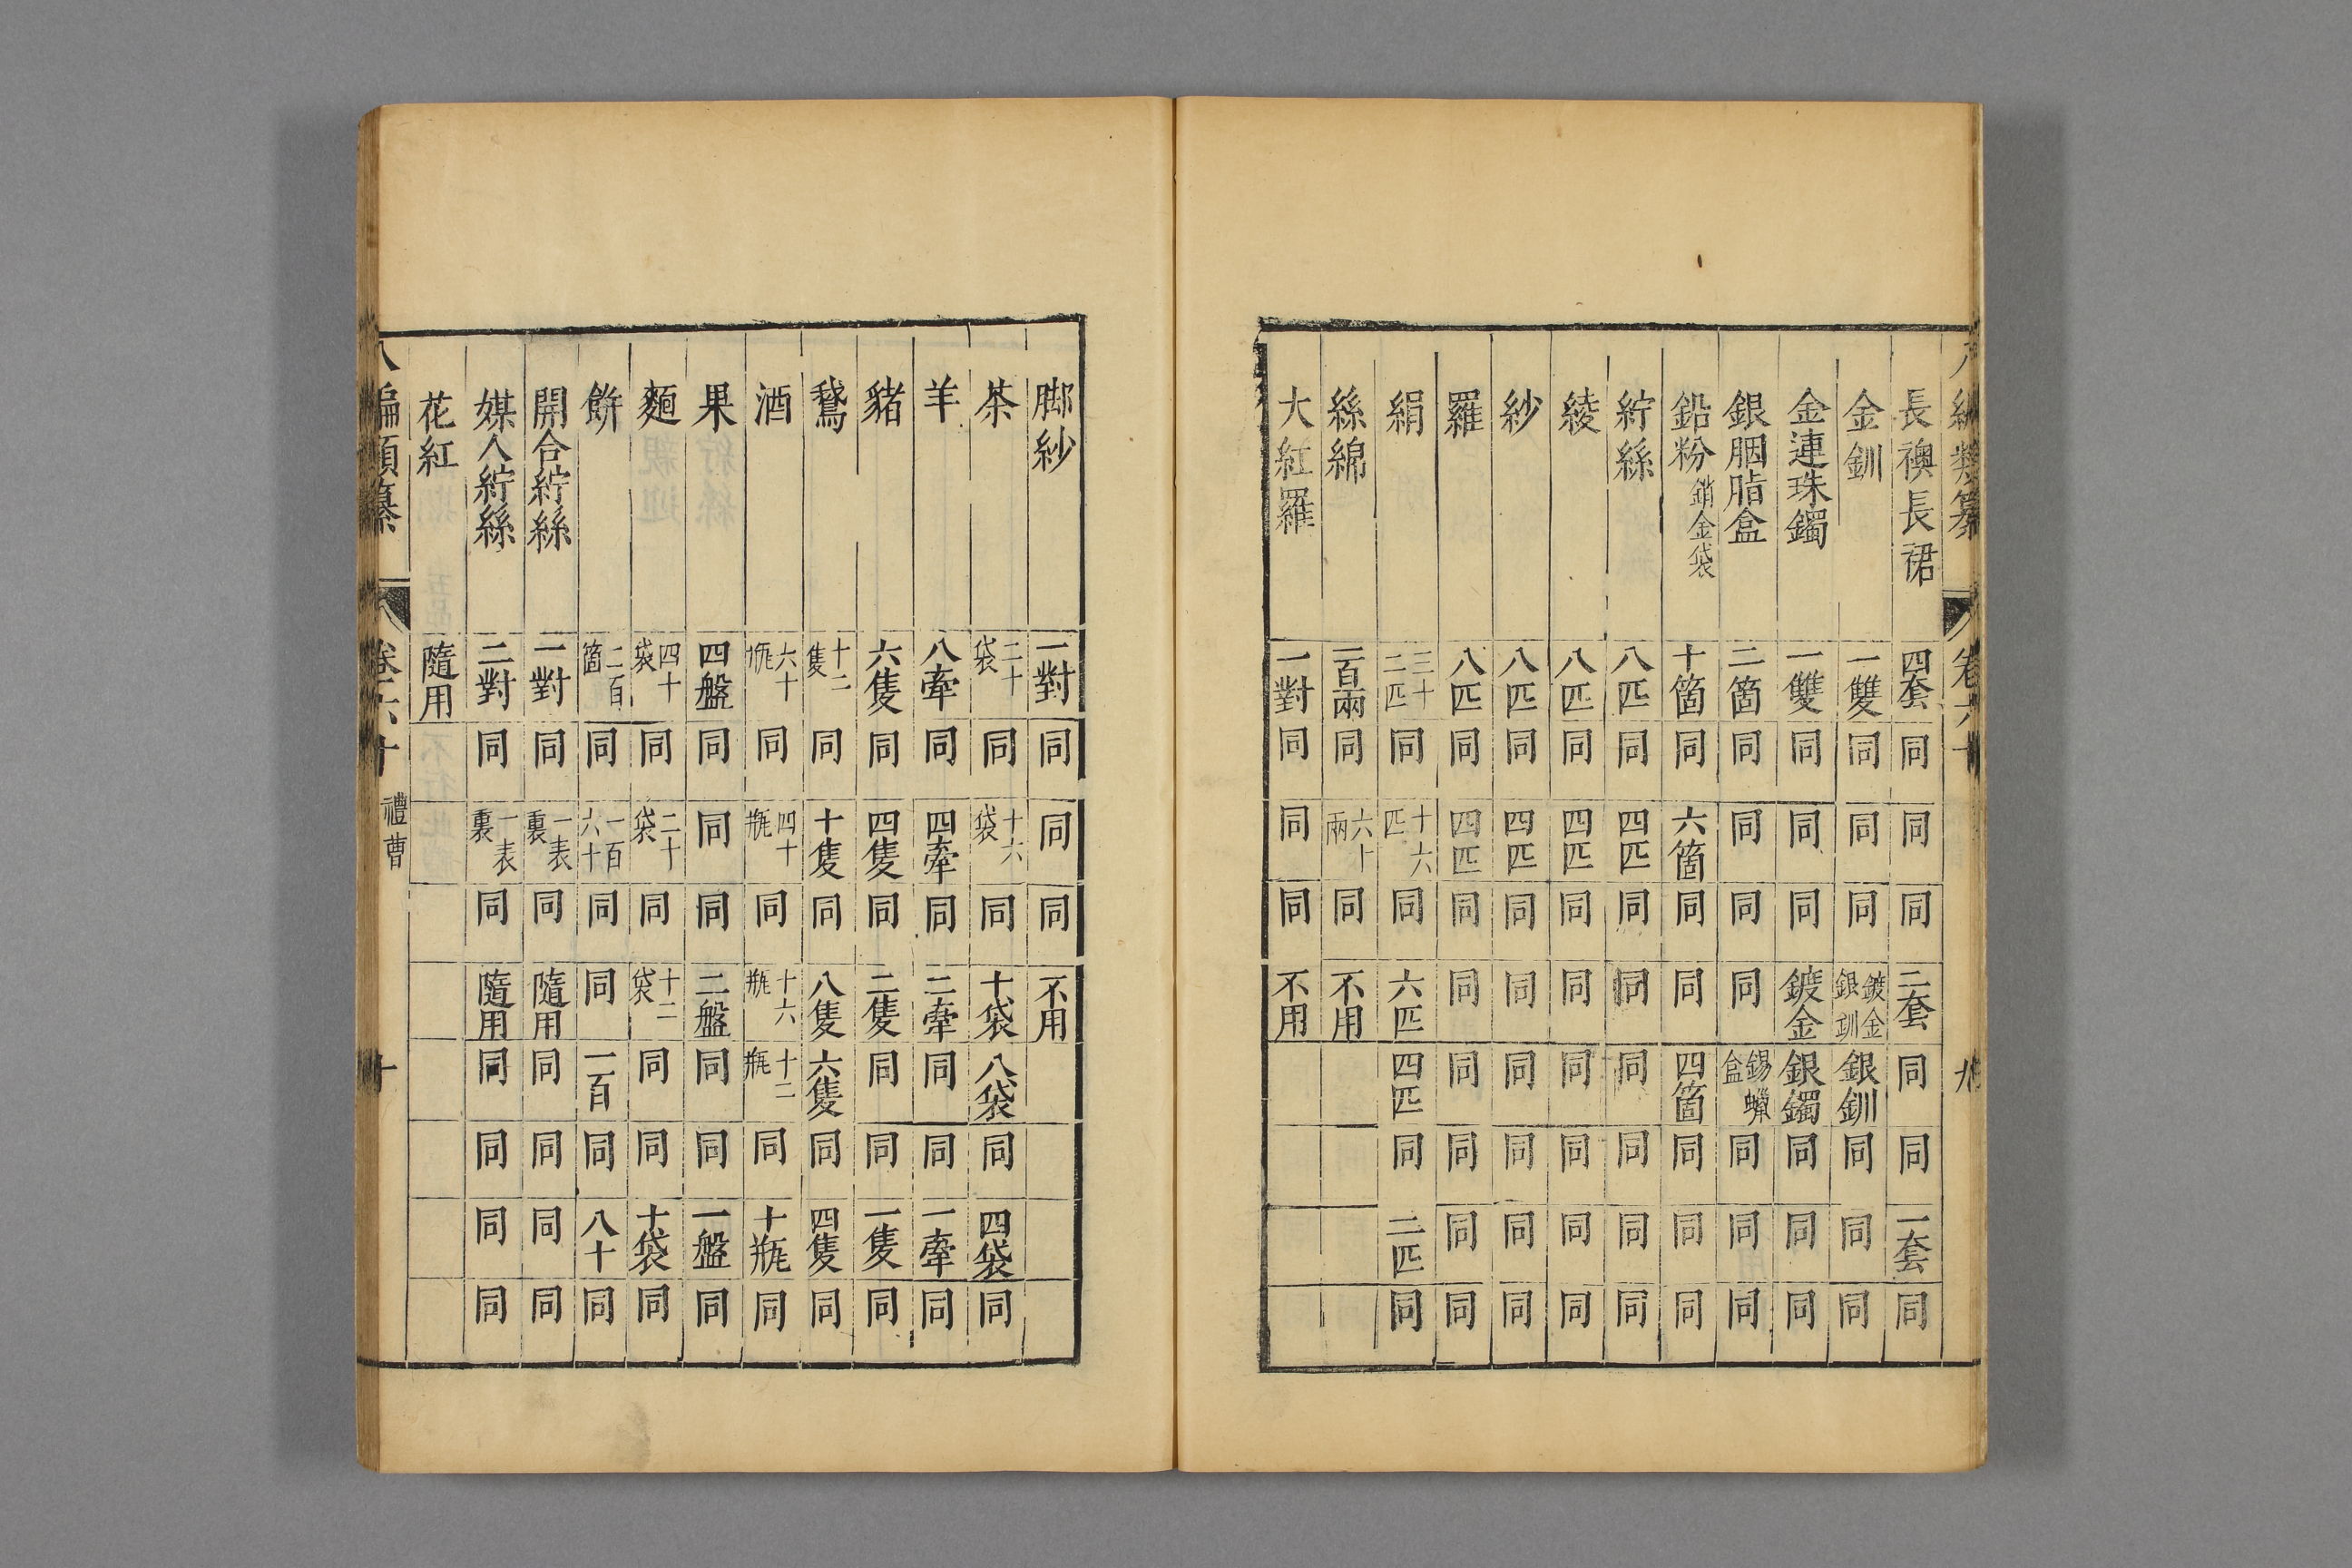 八編類纂 卷六十 九
長襖長裙 四套 同 同 同 二套 同 同 一套 同
金釧 一雙 同 同 同 鍍金銀釧 銀釧 同 同 同
金連珠鐲 一雙 同 同 同 鍍金 銀鐲 同 同 同
銀胭脂盒 二箇 同 同 同 同 錫蠟盒 同 同 同
鉛粉銷金袋 十箇 同 六箇 同 同 四箇 同 同 同
紵絲 八匹 同 四匹 同 同 同 同 同 同
綾 八匹 同 四匹 同 同 同 同 同 同
紗 八匹 同 四匹 同 同 同 同 同 同
羅 八匹 同 四匹 同 同 同 同 同 同
絹 三十二匹 同 十六匹 同 六匹 四匹 同 二匹 同
絲綿 二百兩 同 六十兩 同 不用
大紅羅 一對 同 同 同 不用
脚紗 一對 同 同 同 不用
茶 二十袋 同 十六袋 同 十袋 八袋 同 四袋 同
羊 八牽 同 四牽 同 二牽 同 同 一牽 同
豬 六隻 同 四隻 同 二隻 同 同 一隻 同
鵞 十二隻 同 十隻 同 八隻 六隻 同 四隻 同
酒 六十甁 同 四十甁 同 十六甁 十二甁 同 十甁 同
果 四盤 同 同 同 二盤 同 同 一盤 同
麵 四十袋 同 二十袋 同 十二袋 同 同 十袋 同
餅 二百箇 同 一百六十 同 同 一百 同 八十 同
開合紵絲 一對 同 一表裏 同 隨用 同 同 同 同
媒人紵絲 二對 同 一表裏 同 隨用 同 同 同 同
花紅 隨用
八編類纂 卷六十 禮曹 十